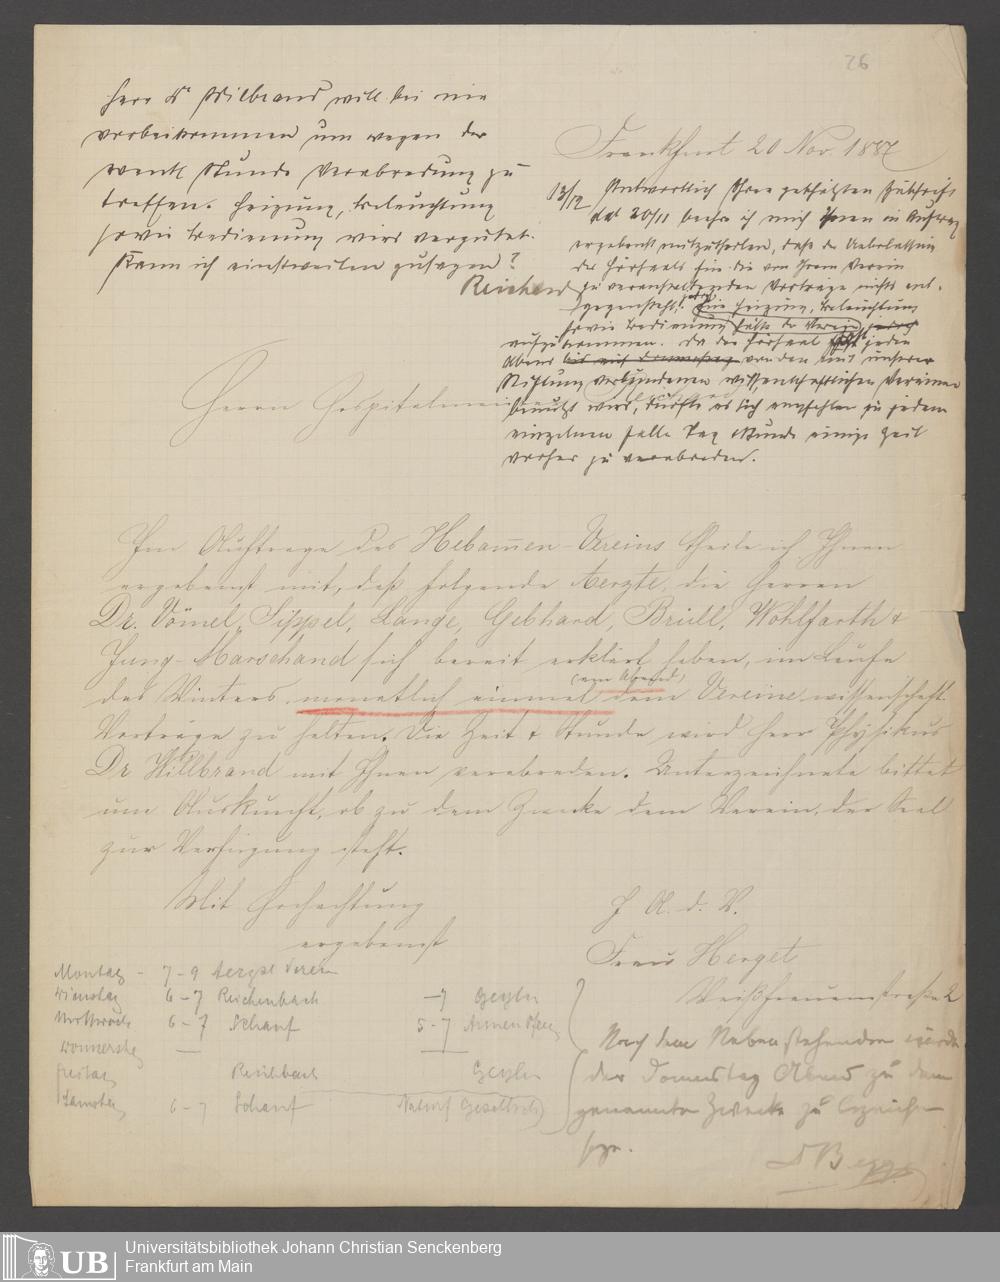 26
Herr Dr Wilbrand will bei mir
vorbeikommen um wegen der
event. Stunde Verabredung zu
treffen. Heizung, Beleuchtung
sowie Bedienung wird vergütet.
Kann ich einstweilen zusagen?
Reichard
Frankfurt 20 Nov. 1887
13/12 Antwortlich Ihrer gefälligen Zuschrift
dd 20/11 beehre ich mich Ihnen im Auftrag
ergebenst mitzutheilen, daß der Ueberlassung
des Hörsaals für die von Ihrem Verein
zu veranstaltenden Vorträge nichts ent-
gegensteht, für Heizung, Beleuchtung
sowie Bedienung hätte der Verein
aufzukommen. Da der Hörsaal fast jeden
Abend von den mit unserer
Stiftung verbundenen wissenschaftlichen Vereinen
benutzt wird, dürfte es sich empfehlen zu jedem
einzelnen Falle Tag & Stunde einige Zeit
vorher zu verabreden.
Herrn Hospitalmeister
Im Auftrage des Hebam̅en-Vereins theile ich Ihnen
ergebenst mit, daß folgende Aerzte, die Herren
Dr. Vömel, Sippel, Lange, Gebhard, Brüll, Wohlfarth &
Jung-Marschand sich bereit erklärt haben, im Laufe
(am Abend)
des Winters monatlich einmal dem Vereine wissenschaft.
Vorträge zu halten. Die Zeit & Stunde wird Herr Physikus
Dr Willbrand mit Ihnen verabreden. Unterzeichnete bittet
um Auskunft, ob zu dem Zwecke dem Verein, der Saal
zur Verfügung steht.
Mit Hochachtung
ergebenst
J. A. d. V.
Frau Herget
Weißfrauenstraße 2
Montag - 7-9 Aerztl Verein
Dienstag 6-7 Reichenbach -7 Geyler
Mittwoch 6-7 Schauf 5-7
Donnerstag —
Freitag Reichbach Geyler
Samstag 6-7 Schauf Naturf Gesellsch
Nach dem Nebenstehenden würde
der Donnerstag Abend zu dem
genannten Zwecke zu bezeichnen
sein.